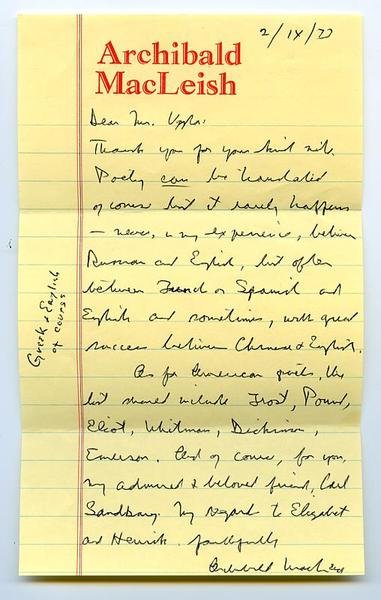 Archibald
MacLeish
2/IX/77
Dear Mr.
Thank you for your kind note.
Poetry can be translated
of course but it rarely happens
— never, in my experience, between
Russian and English, but often
between French or Spanish and
English and sometimes, with great
success between Chinese & English.
Greek & English
of course
As for American poets, the
list should include Frost, Pound,
Eliot, Whitman, Dickinson,
Emerson. And of course, for you,
my admired & beloved friend, Carl
Sandburg. My regard to Elizabet
and Henrik. faithfully
Archibald MacLeish